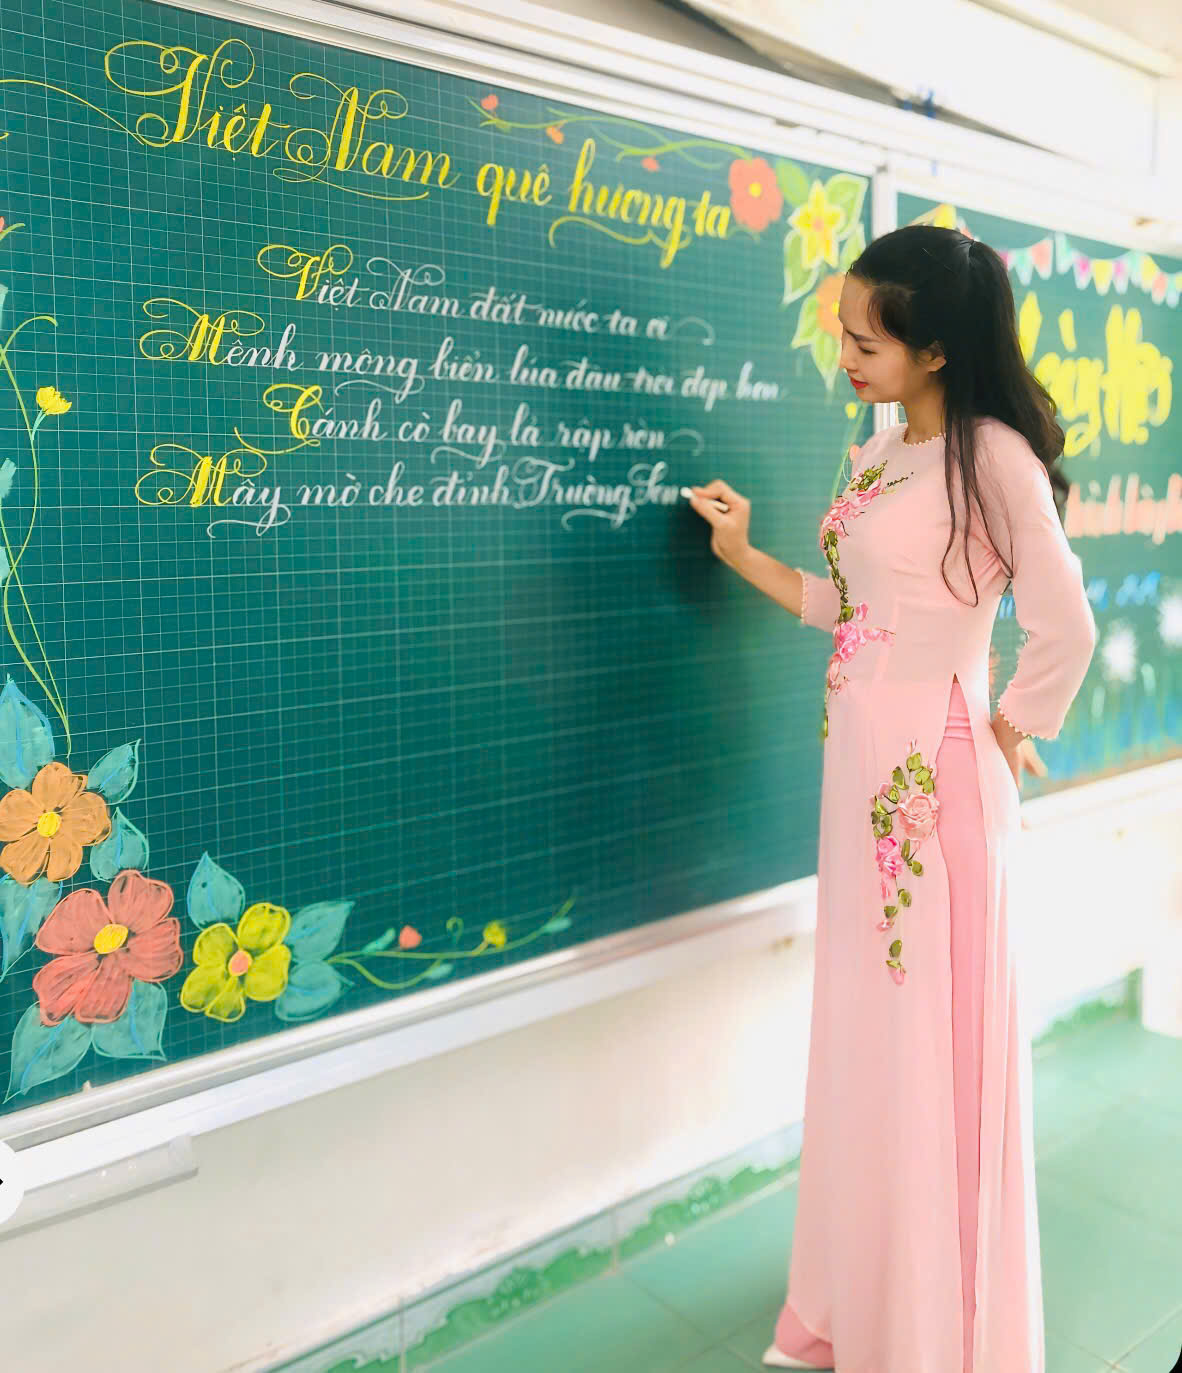 Việt Nam quê hương ta
Việt Nam đất nước ta ơi
Mênh mông biển lúa đâu trời đẹp hơn
Cánh cò bay lả rập rờn
Mây mờ che đỉnh Trường Sơn